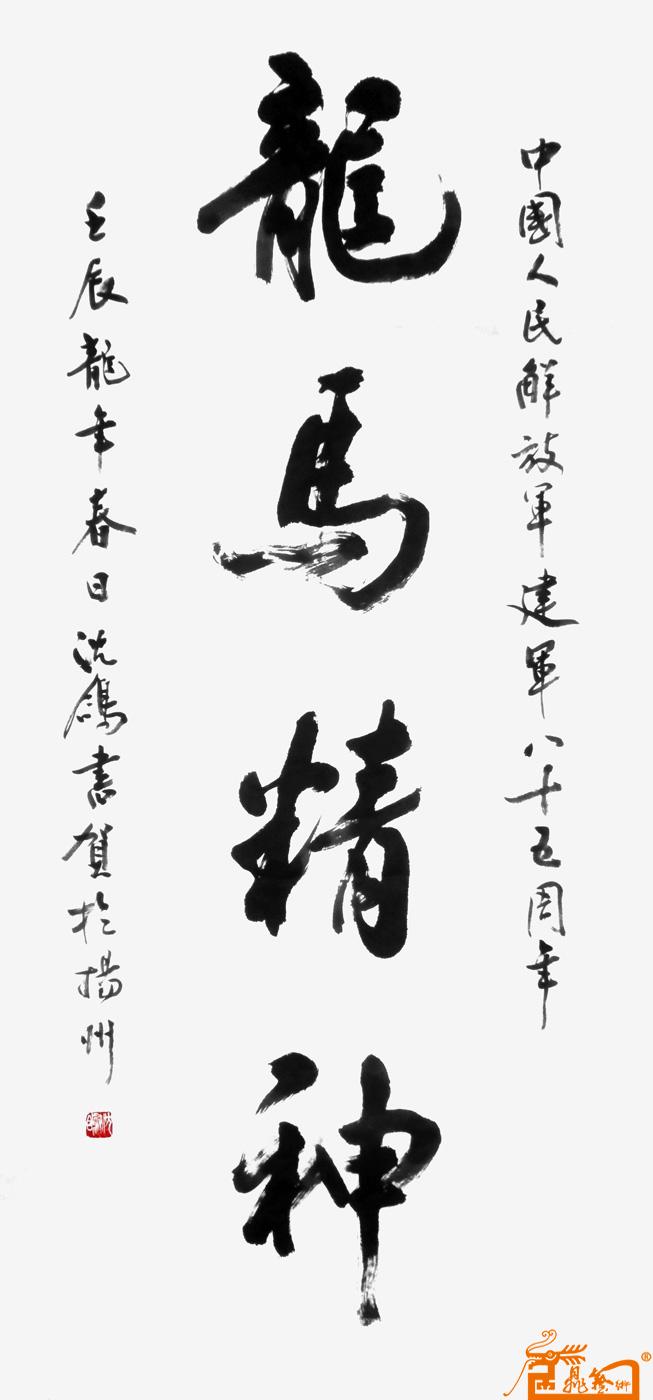 中國人民解放軍建軍八十五周年
龍馬精神
壬辰龍年春日沈鴿書賀於揚州